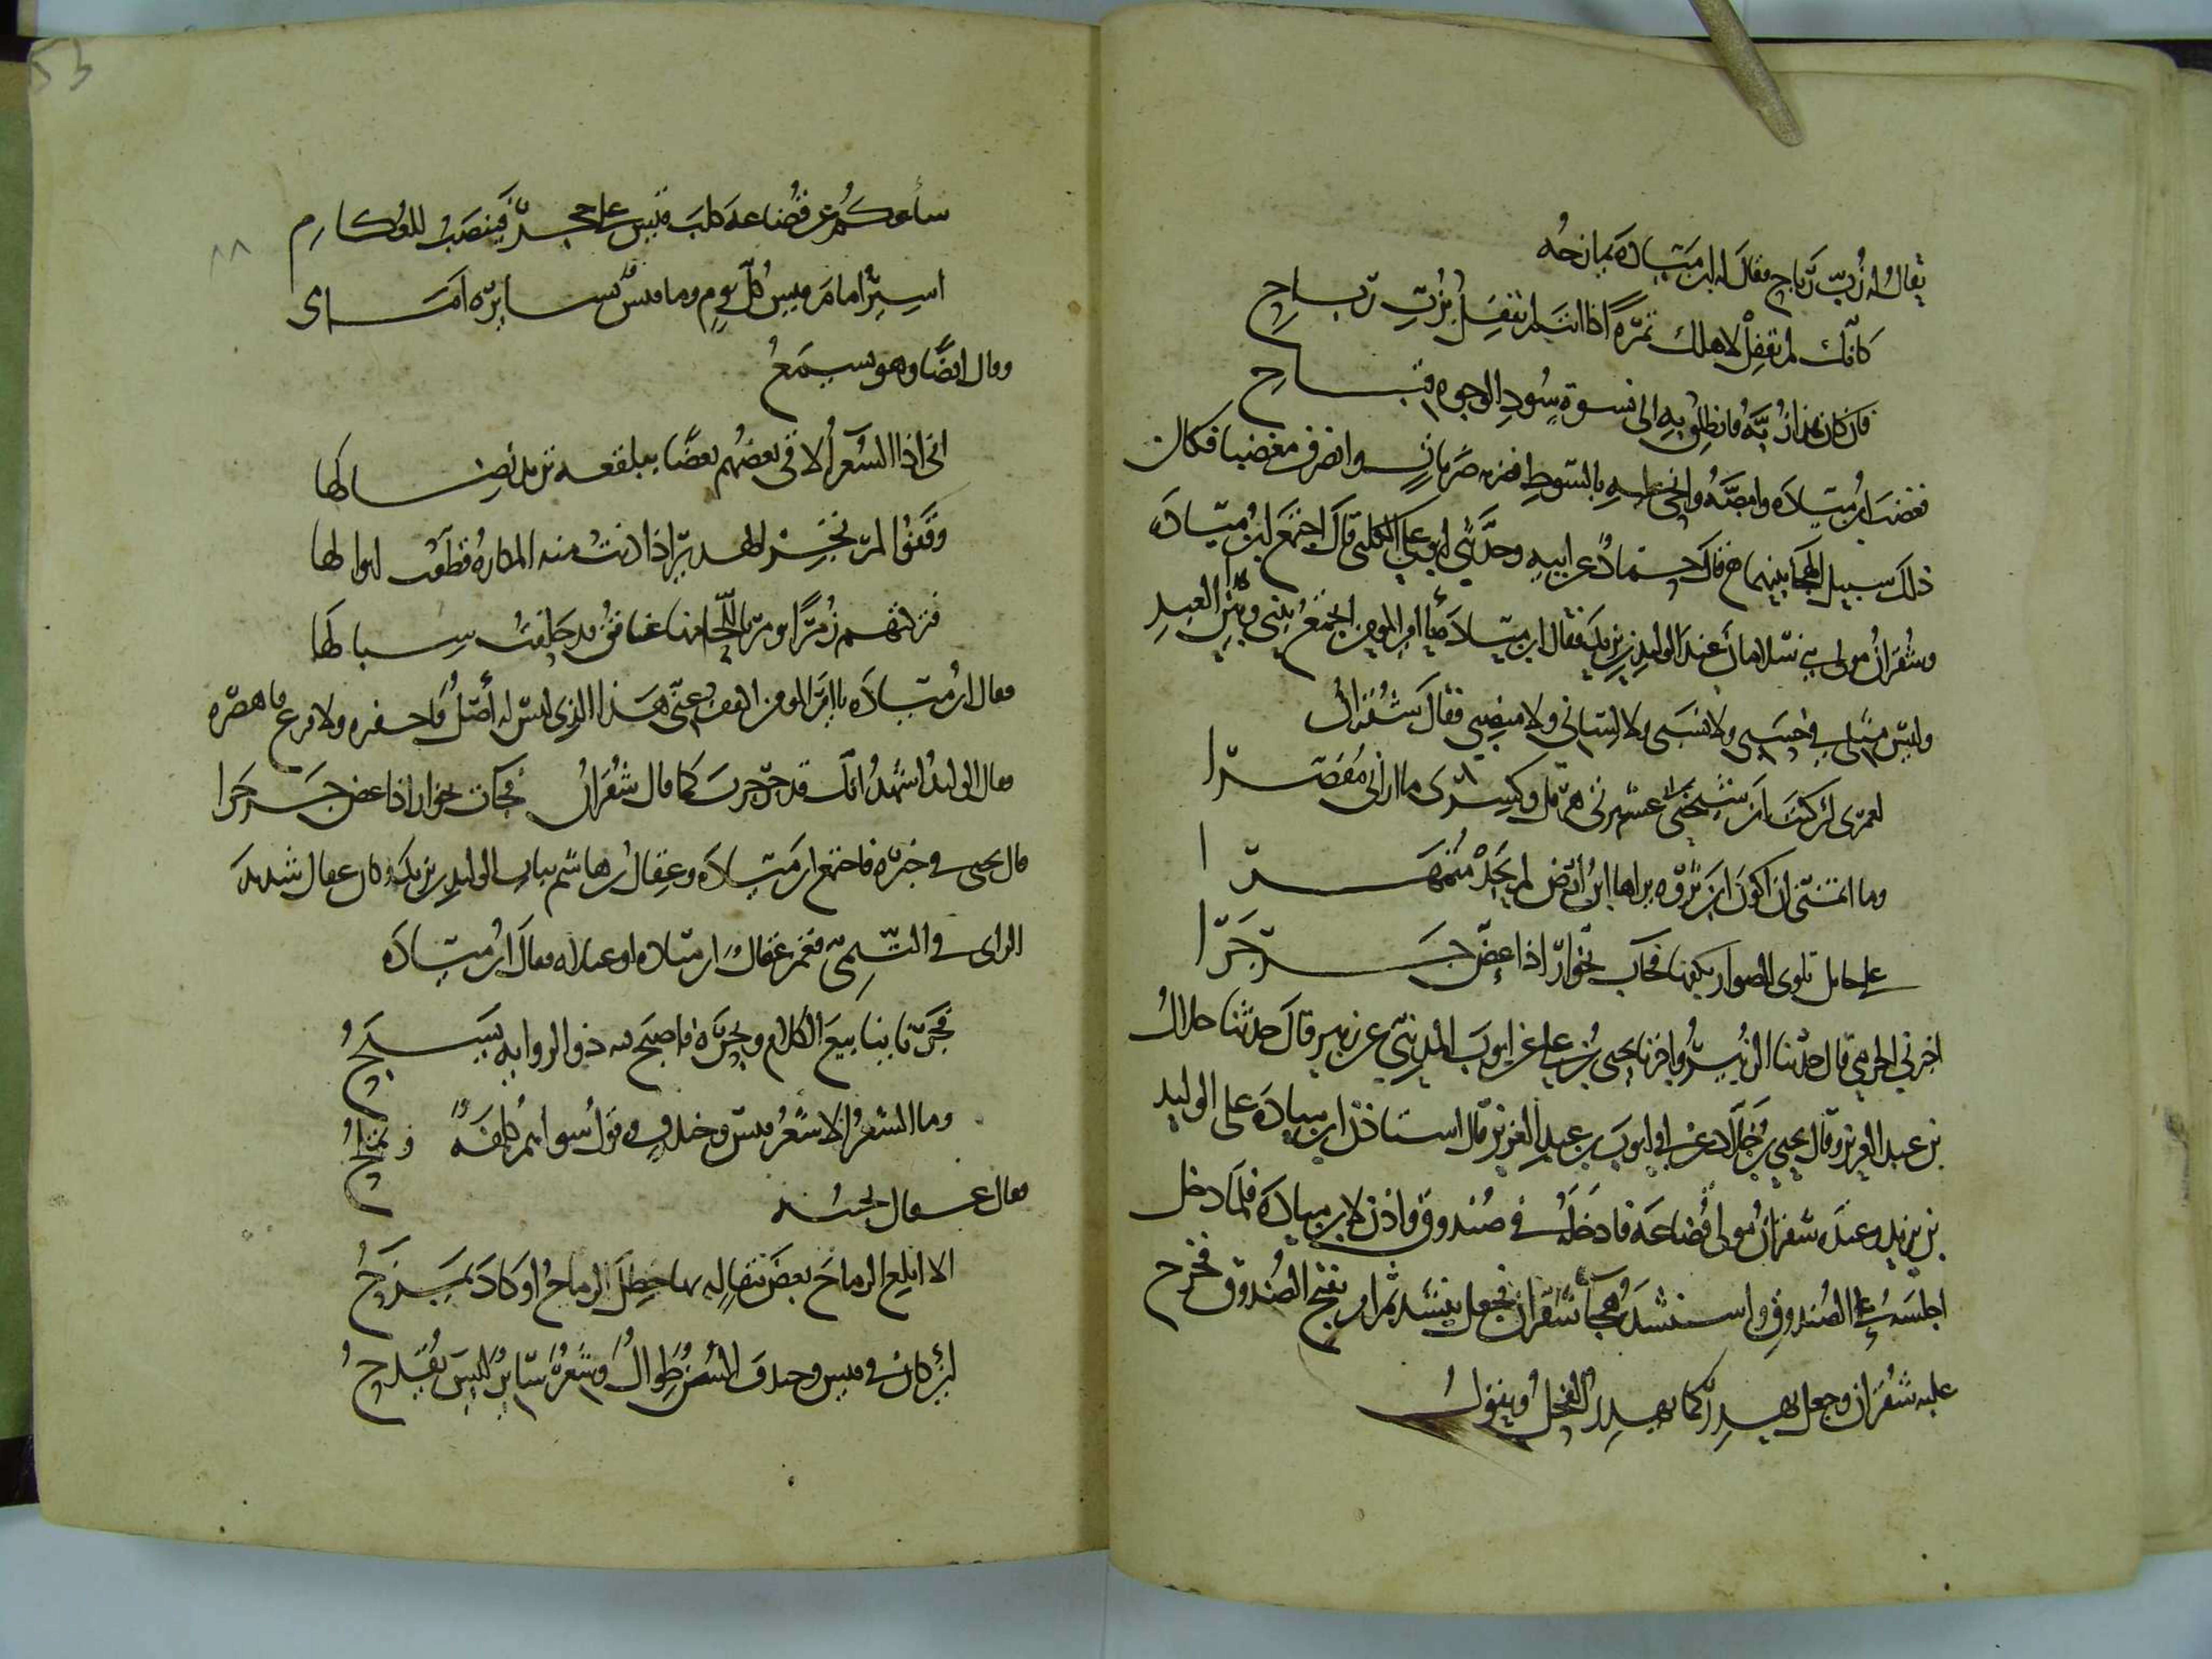 يقال له زُبّ رُبّاح فقالَ له ابن مَيّادة يمازحُه
كأنّك لم تقفِلْ لاهلك تمرةً اذا انتَ لم تقفِل بزُبّ رُباحِ
فان كان هذا زُبَّهُ فانطلِق به الى نسوةٍ سُودِ الوجوه قباحِ
فغضبَ ابن ميّادة وامصَّهُ وانحى عليه بالسَّوطِ فضربه ضرباتٍ وانصرف مغضبا فكان
ذلك سبيل الهجا بينهما ح قال حمادٌ عن ابيه وحدَّثني ابو علي الكلبي قال اجتمعَ ابن ميّادة
وشُقران مولى بني سلامان عند الوليد بن يزيد فقال ابن ميّادة يا امير المومنين اتجمعُ بيني وبين هذا العبدِ
وليس مثلي في حَسَبي ولا نسَبي ولا لساني ولا منصبي فقال شُقرانُ
لعمري لئن كنتَ ابن شيخَي عشيرتي هرقلٍ وكسرى ما اراني مُقصّرا
وما اتمنّى ان اكونَ ابن نزوةٍ نزاها ابنُ ارضٍ لم يجدْ مُتمَهَّرا
على حايل تلوي الصرار بكفها فجات بخوّارٍ اذا عُضّ جَرجَرا
اخبرني الحرمي قال حدثنا الزُبيرُ واخبرنا يحيى بن علي عن ايوبَ المديني عن زبير قال حدثنا جلال
بن عبد العزيز وقال يحيى بن خلّاد عن ابي ايوب بن عبد العزيز قال استاذن ابن ميادة على الوليد
بن يزيد وعنده شقران مولى قُضاعة فادخله في صُندوق واذن لابن ميادة فلما دخل
اجلسه على الصُندوق واستنشده هجآ شُقران فجعل ينشده ثم امر بفتح الصُندوق فخرج
عليه شُقران وجعل يهدِر كما يهدِر الفحلُ ويقول
53
٨٨
سأعكُم عن قُضاعة كلبَ قيس على حجرٍ فينصتُ للعكام
اسيرُ امام قيسٍ كُلّ يوم وما قيسٌ بسايرةٍ امامي
وقال ايضًا وهو يسمعُ
اني اذا الشعرآُ لاقى بعضُهم بعضًا ببلقعة تريد نِضالها
وقفوا لمرتجز الهدير اذا دنتْ منه البكارةُ قطّعتْ ابوالها
فتركتهم زُمرًا ترمّز باللّحا منها عنافقُ قد حلقتُ سبالها
فقال ابن ميادة يا امير المومنين اكفف عني هذا الذي ليس له أصلٌ فاحفره ولا فرعٌ فاهصره
فقال الوليدُ اشهدُ انك قد جرجرت كما قال شُقرانُ فجات بخوار اذا عض جرجرا
قال يحيى في خبره فاجتمع ابن ميّادة وعِقال بن هاشم بباب الوليد بن يزيد وكان عقال شديدَ
الراي في اليمن فغمز عقالُ ابن ميّادة واعتلاه فقال ابنُ ميّادة
فجرنا ينابيعَ الكلام وبحرَهُ فاصبح فيه ذو الرواية يسبحُ
وما الشعرُ الا شعرُ قيسٍ وخندفٍ وقول سواهم كلفةٌ وتملُّحُ
فقال عقال يجيبه
الا ابلغ الرماحَ نقضَ مقالةٍ بها خطِلَ الرماحُ او كادَ يمزحُ
لئن كان في قيس وخندف السُنٌ طِوالٌ وشعرٌ سايرٌ ليس يُقدحُ